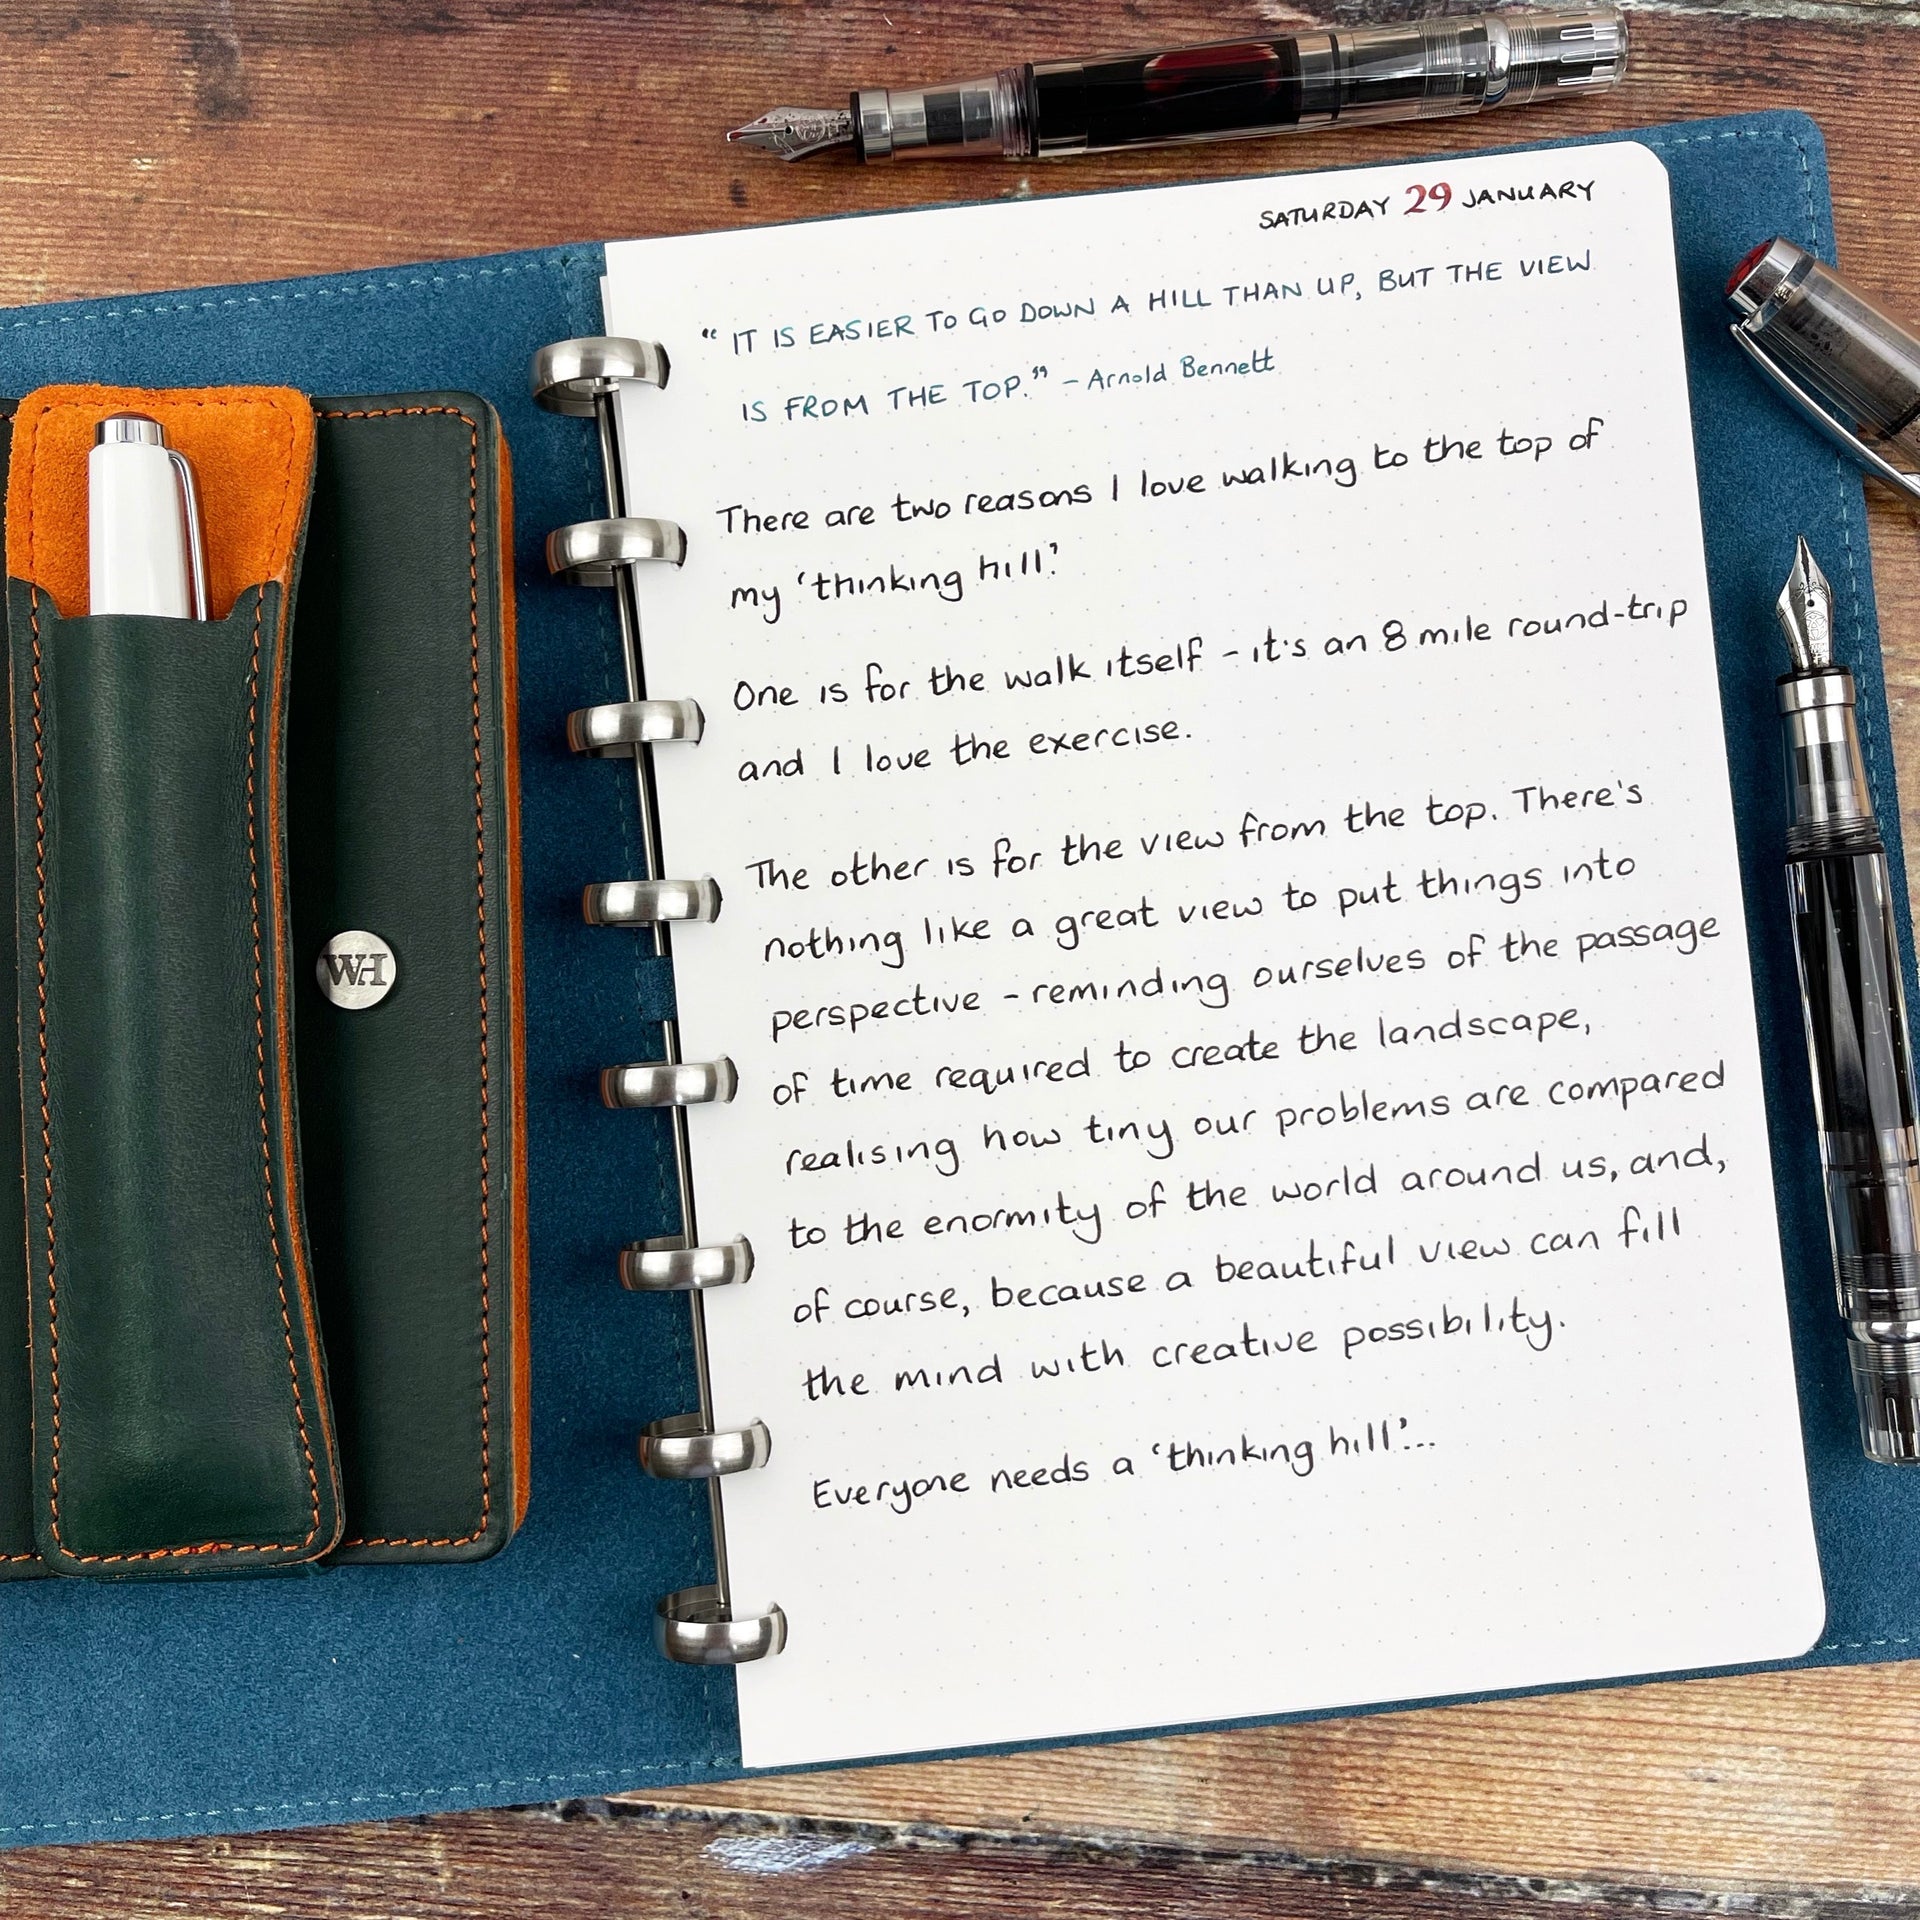 SATURDAY 29 JANUARY
“IT IS EASIER TO GO DOWN A HILL THAN UP, BUT THE VIEW
IS FROM THE TOP.” – Arnold Bennett
There are two reasons I love walking to the top of
my ‘thinking hill’.
One is for the walk itself – it's an 8 mile round-trip
and I love the exercise.
The other is for the view from the top. There's
nothing like a great view to put things into
perspective – reminding ourselves of the passage
of time required to create the landscape,
realising how tiny our problems are compared
to the enormity of the world around us, and,
of course, because a beautiful view can fill
the mind with creative possibility.
Everyone needs a ‘thinking hill’...
WH